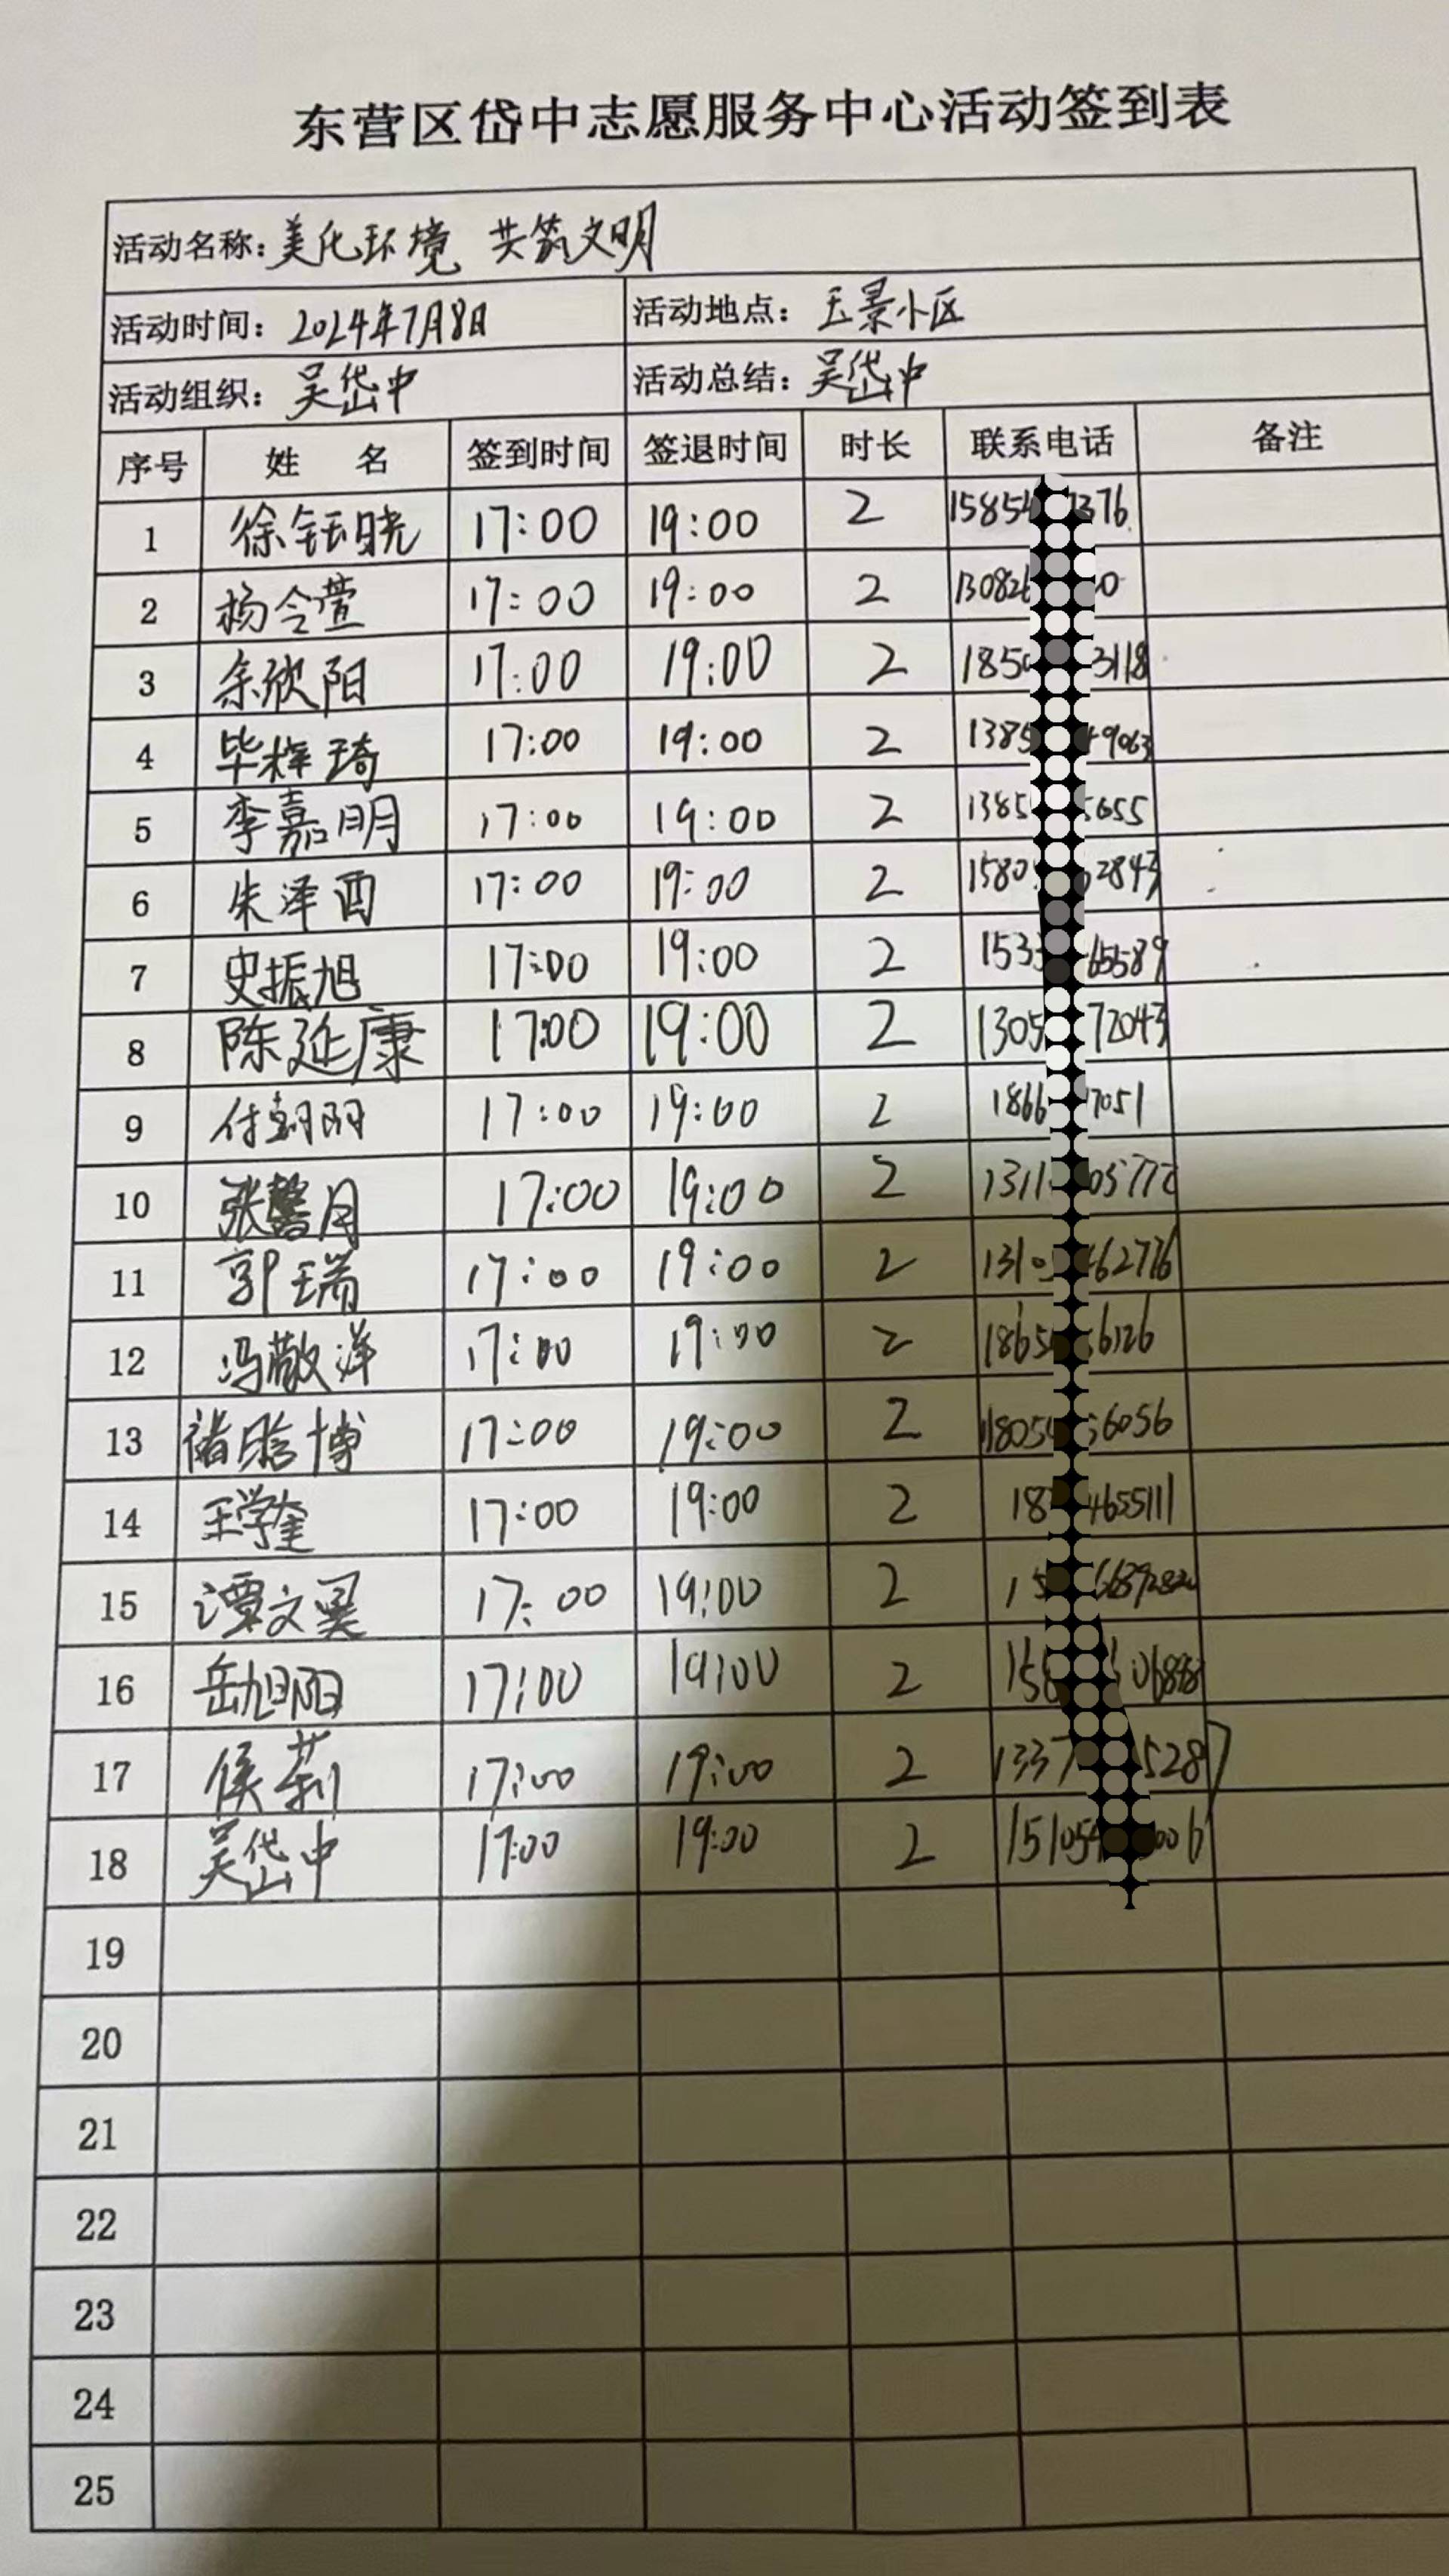 东营区岱中志愿服务中心活动签到表
活动名称：美化环境 共筑文明
活动时间：2024年7月8日 活动地点：玉景小区
活动组织：吴岱中 活动总结：吴岱中
序号 姓 名 签到时间 签退时间 时长 联系电话 备注
1 徐钰晓 17:00 19:00 2 1585 376
2 杨令萱 17:00 19:00 2 13082 0
3 余欣阳 17:00 19:00 2 185 3118
4 毕梓琦 17:00 19:00 2 1385 9063
5 李嘉明 17:00 19:00 2 1385 5655
6 朱泽酉 17:00 19:00 2 1580 2843
7 史振旭 17:00 19:00 2 153 65589
8 陈延康 17:00 19:00 2 1305 72043
9 付朝阳 17:00 19:00 2 1866 7051
10 张馨月 17:00 19:00 2 1311 05772
11 郭瑞 17:00 19:00 2 1310 62776
12 冯敬洋 17:00 19:00 2 1865 6126
13 褚晗博 17:00 19:00 2 1805 56056
14 王学奎 17:00 19:00 2 18 4655111
15 谭文昊 17:00 19:00 2 15
16 岳旭阳 17:00 19:00 2 15 06898
17 侯莉 17:00 19:00 2 1337 5287
18 吴岱中 17:00 19:00 2 15105 006
19
20
21
22
23
24
25